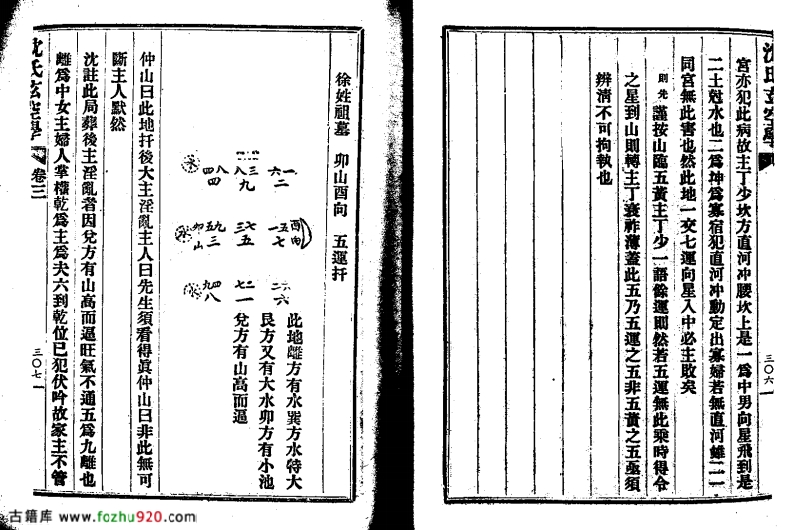 沈氏玄空學
三〇六
宮亦犯此病故主丁少坎方直河冲腰坎上是一爲中男向星飛到是
二土尅水也二爲坤爲寡宿犯直河冲動定出寡婦若無直河雖二一
同宮無此害也然此地一交七運向星入中必主敗矣
則先 謹按山臨五黃主丁少一語餘運則然若五運無此乘時得令
之星到山則轉主丁衰祚薄蓋此五乃五運之五非五黃之五亟須
辨清不可拘執也
徐姓祖墓 卯山酉向 五運扦
酉向
卯山
水
水
水
此地離方有水巽方水特大
艮方又有大水卯方有小池
兌方有山高而逼
仲山曰此地扦後大主淫亂主人曰先生須看得眞仲山曰非此無可
斷主人默然
沈註此局葬後主淫亂者因兌方有山高而逼旺氣不通五爲九離也
離爲中女主婦人掌權乾爲主爲夫六到乾位已犯伏吟故家主不管
沈氏玄空學 卷三
三〇七
古籍库 www.fozhu920.com